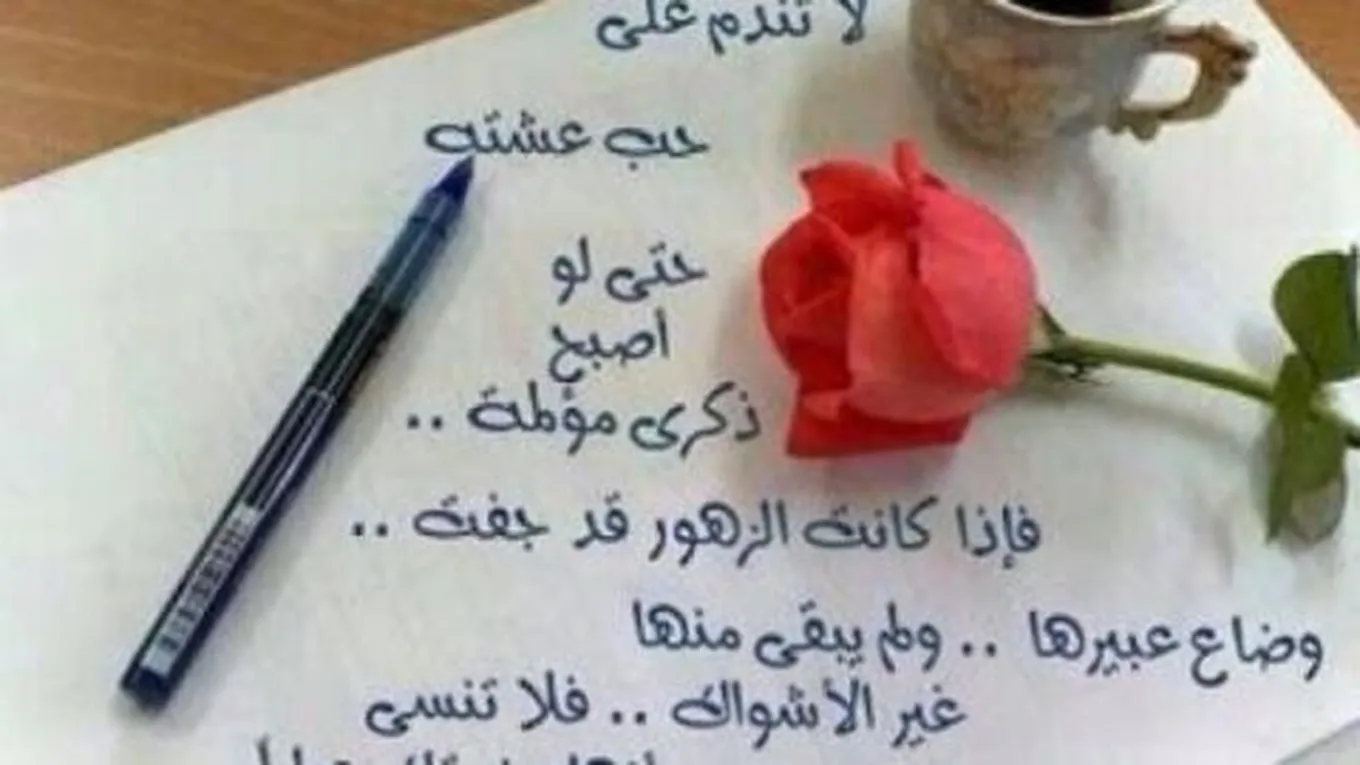 لا تندم على
حب عشته
حتى لو
اصبح
ذكرى مؤلمة ..
فإذا كانت الزهور قد جفت ..
وضاع عبيرها .. ولم يبقى منها
غير الأشواك .. فلا تنسى